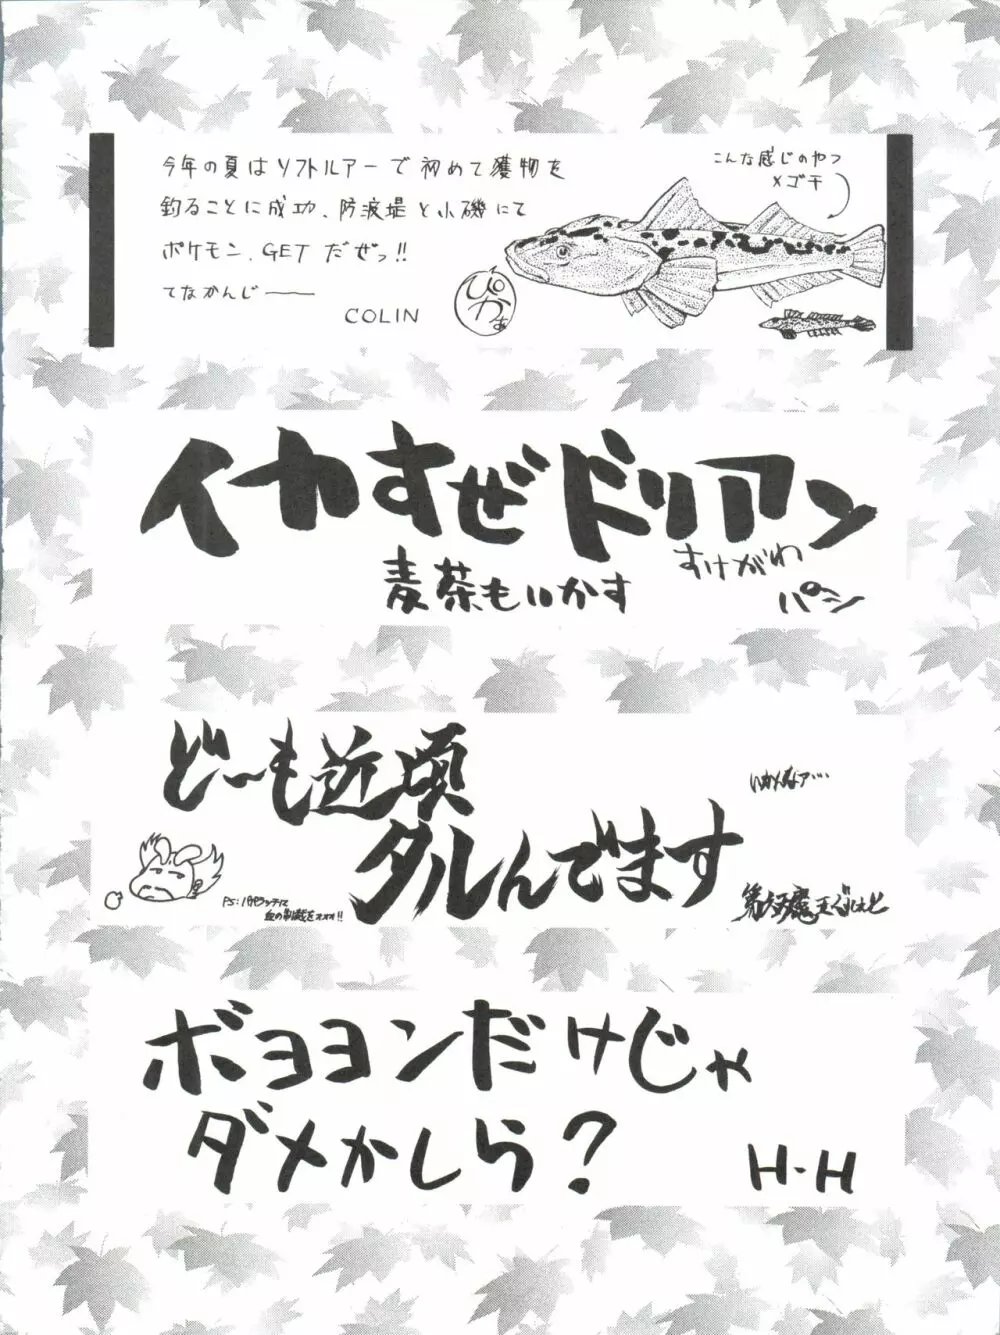 今年の夏はソフトルアーで初めて獲物を
釣ることに成功、防波堤と小磯にて
ポケモン、GETだぜっ!!
てなかんじ――
COLIN
ぴかぁ
こんな感じのやつ
メゴチ
イカすぜドリアン
麦茶もいかす
すけがわ
パン
どーも近頃
タルんでます
いかんなァ…
PS:
血の制裁をォォォ!!
第六天魔王ぐはぁと
ボヨヨンだけじゃ
ダメかしら?
H・H